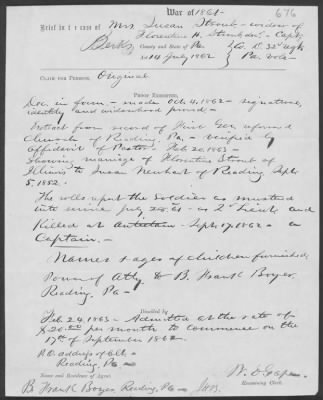 War of 1861
676
Brief in the case of Mrs. Susan Stroub - widow of
Florentine H. Straub, decd. - Capt.
Berks County and State of Pa Co. D. 32d Regt
14 July 1862 Pa Vols -
Claim for Pension. Original
Proof Exhibited.
Dec. in form - made Oct. 4, 1862 - signature,
identity and widowhood proved -
Extract from record of First Ger. reformed
Church of Reading, Pa - verified by
affidavit of Pastor Feb 20. 1863 -
Showing marriage of Florentine Stroub of
Illinois to Susan Newhart of Reading Sept
5, 1852.
The rolls report the soldier as mustered
into service July 1861 as 2d Lieut and
Killed at Antietam - Sept. 17, 1862 - a
Captain. -
Names & ages of children furnished.
Power of Atty & B. Frank Boyer
Reading, Pa -
Disability
Feb. 24, 1863 - Admitted at the rate of
$20.00 per month to commence on the
17th of September 1862
P.O. address of Clt -
Reading, Pa -
Name and Residence of Agent.
Examining Clerk.
B. Frank Boyer, Reading, Pa -